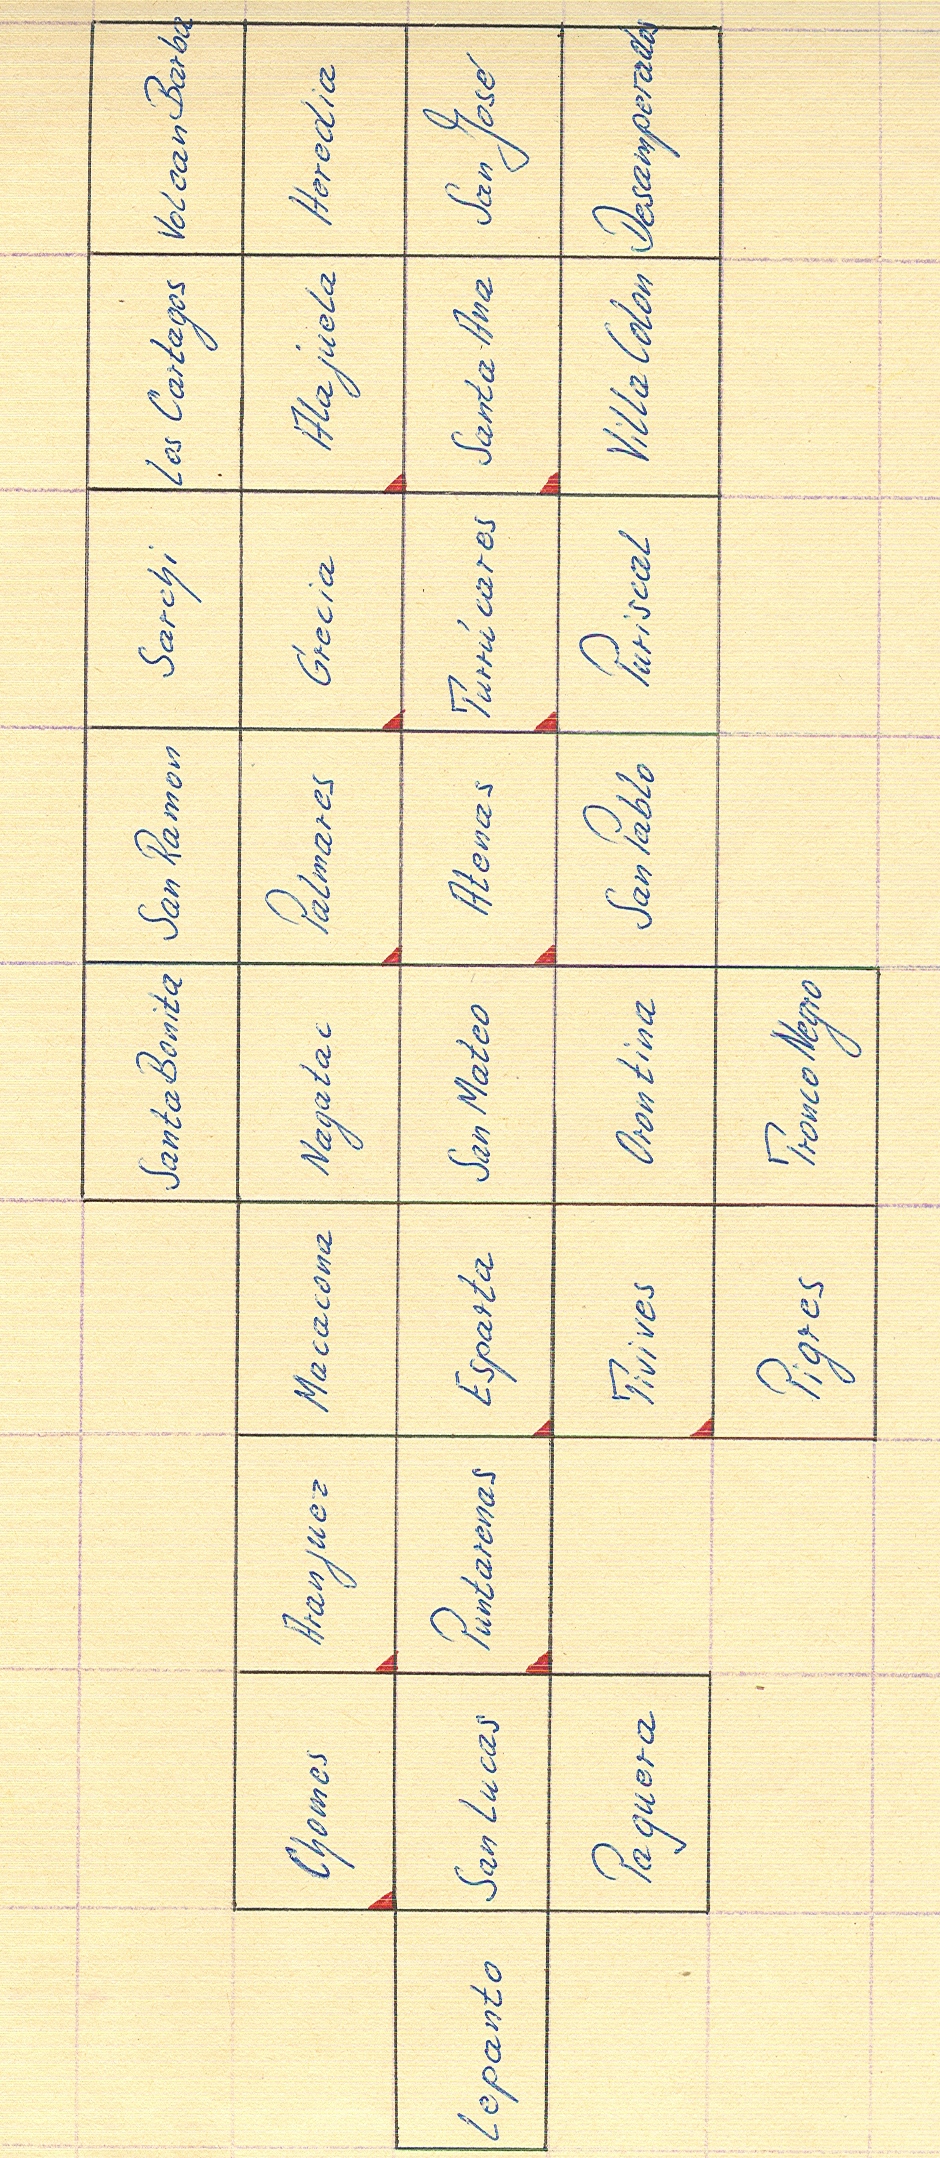 Santa Bonita
San Ramon
Sarchi
Los Cartagos
Volcan Barba
Chomes
Aranjuez
Macacona
Nagatac
Palmares
Grecia
Alajuela
Heredia
Lepanto
San Lucas
Puntarenas
Esparta
San Mateo
Atenas
Turrúcares
Santa Ana
San José
Paquera
Tivives
Orontina
San Pablo
Puriscal
Villa Colon
Desamperados
Pigres
Tronco Negro